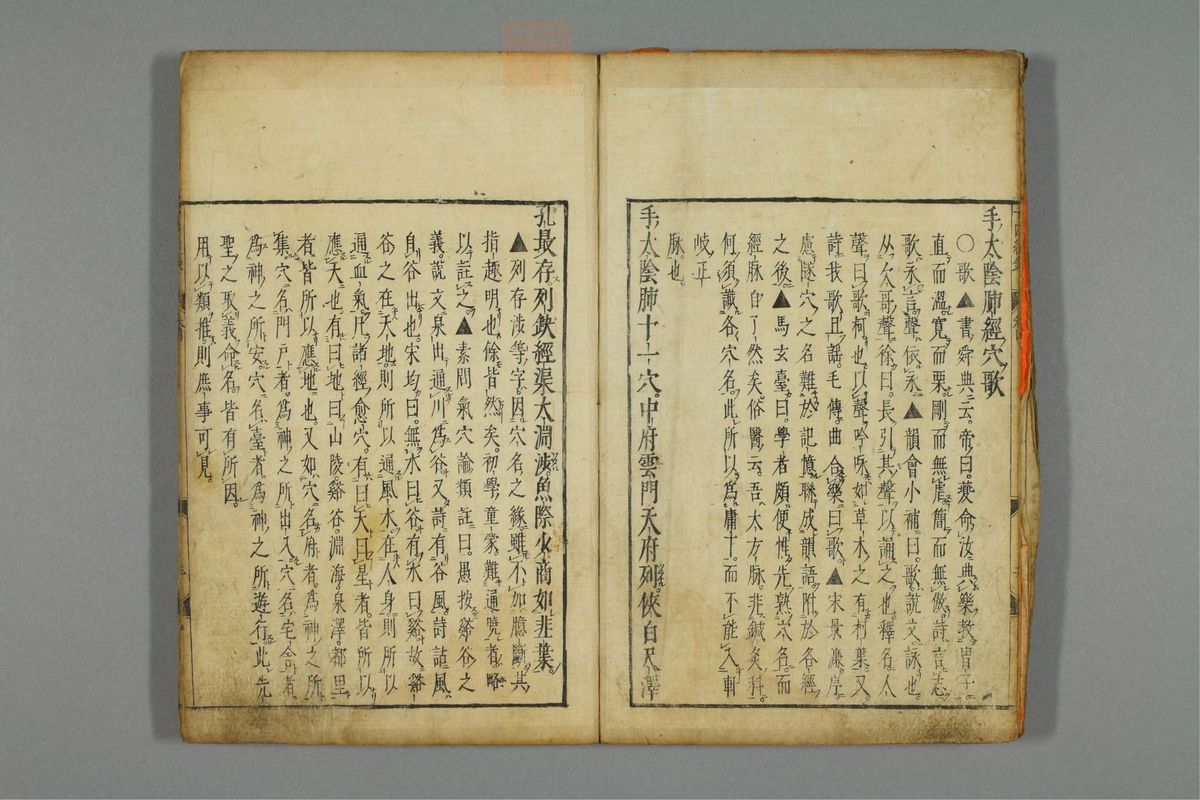 手太陰肺經穴歌
〇歌▲書舜典云帝曰夔命汝典樂教冑子
直而溫寬而栗剛而無虐簡而無傲詩言志
歌永言聲依永▲韻會小補曰歌說文詠也
从欠哥聲徐曰長引其聲以誦之也釋名人
聲曰歌柯也以聲吟咏如草木之有柯葉又
詩我歌且謠毛傳曲合樂曰歌▲宋景濂序
慮隧穴之名難於記憶聯成韻語附於各經
之後▲馬玄臺曰學者頗便性先熟穴名而
經脉自了然矣俗醫云吾太方脉非鍼灸科
何須識各穴名此所以爲庸下而不能入軒
岐正
脉也
手太陰肺十一穴中府雲門天府列俠白尺澤
孔最存列缺經渠太淵涉魚際少商如韭葉
▲列存涉等字因穴名之緣雖不加臆斷其
指趣明也餘皆然矣初學童蒙難通曉者略
以註之▲素問氣穴論類註曰愚按谿谷之
義說文泉出通川爲谷又詩有谷風詩詁風
自谷出也宋均曰無水曰谷有水曰谿故谿
谷之在天地則所以通風水在人身則所以
通血氣凡諸經俞穴有曰天曰星者皆所以
應天也有曰地曰山陵谿谷淵海泉澤都里
者皆所以應地也又如穴名府者爲神之所
集穴名門戶者爲神之所出入穴名宅舍者
爲神之所安穴名臺者爲神之所遊行此先
聖之取義命名皆有所因
用以類推則庶事可見